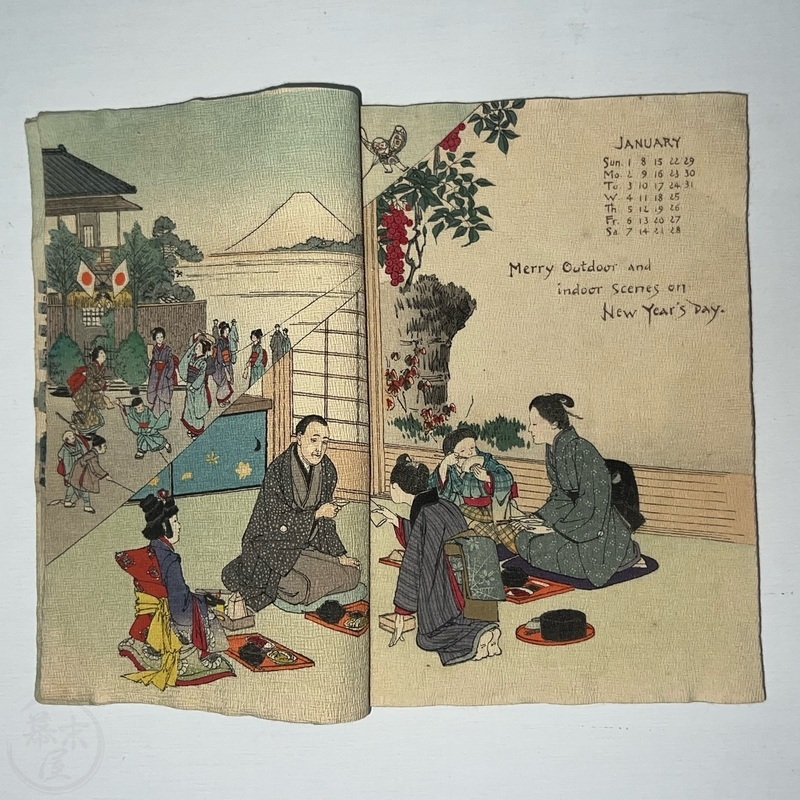 JANUARY
Sun. 1 8 15 22 29
Mo. 2 9 16 23 30
Tu. 3 10 17 24 31
W 4 11 18 25
Th 5 12 19 26
Fr. 6 13 20 27
Sa. 7 14 21 28
Merry Outdoor and
indoor scenes on
New Year's Day.
幕末屋